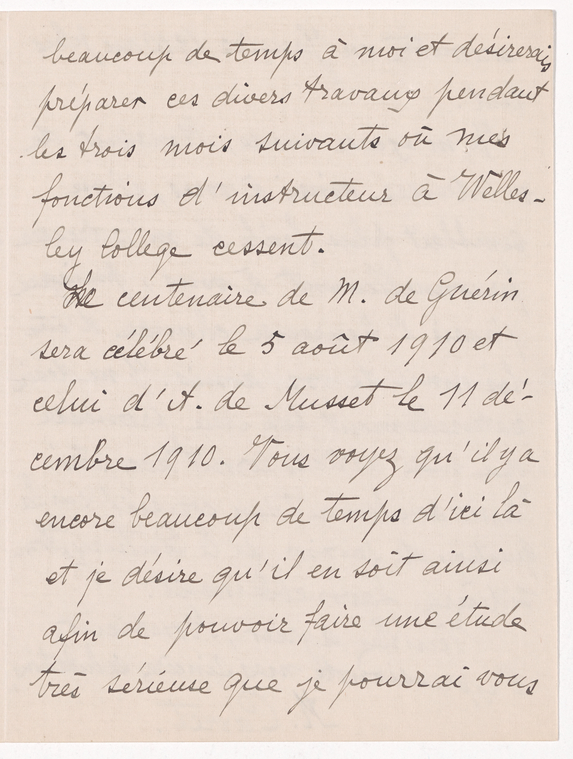 beaucoup de temps à moi et désirerais
préparer ces divers travaux pendant
les trois mois suivants où mes
fonctions d'instructeur à Welles-
ley College cessent.
Le centenaire de M. de Guérin
sera célébré le 5 août 1910 et
celui d'A. de Musset le 11 dé-
cembre 1910. Vous voyez qu'il y a
encore beaucoup de temps d'ici là
et je désire qu'il en soit ainsi
afin de pouvoir faire une étude
très sérieuse que je pourrai vous